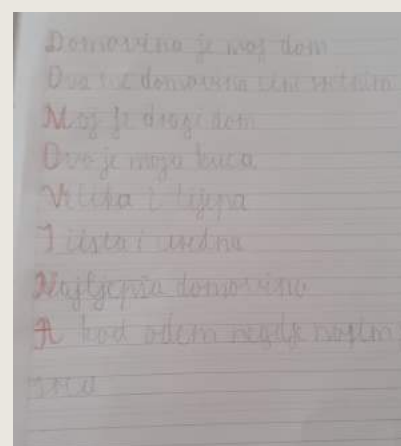 Domovina je moj dom
Ova me domovina čini sretnim
Moj je drugi dom
Ovo je moja kuća
Velika i lijepa
I čista i uredna
Najljepša domovina
A kad odem negdje nosim